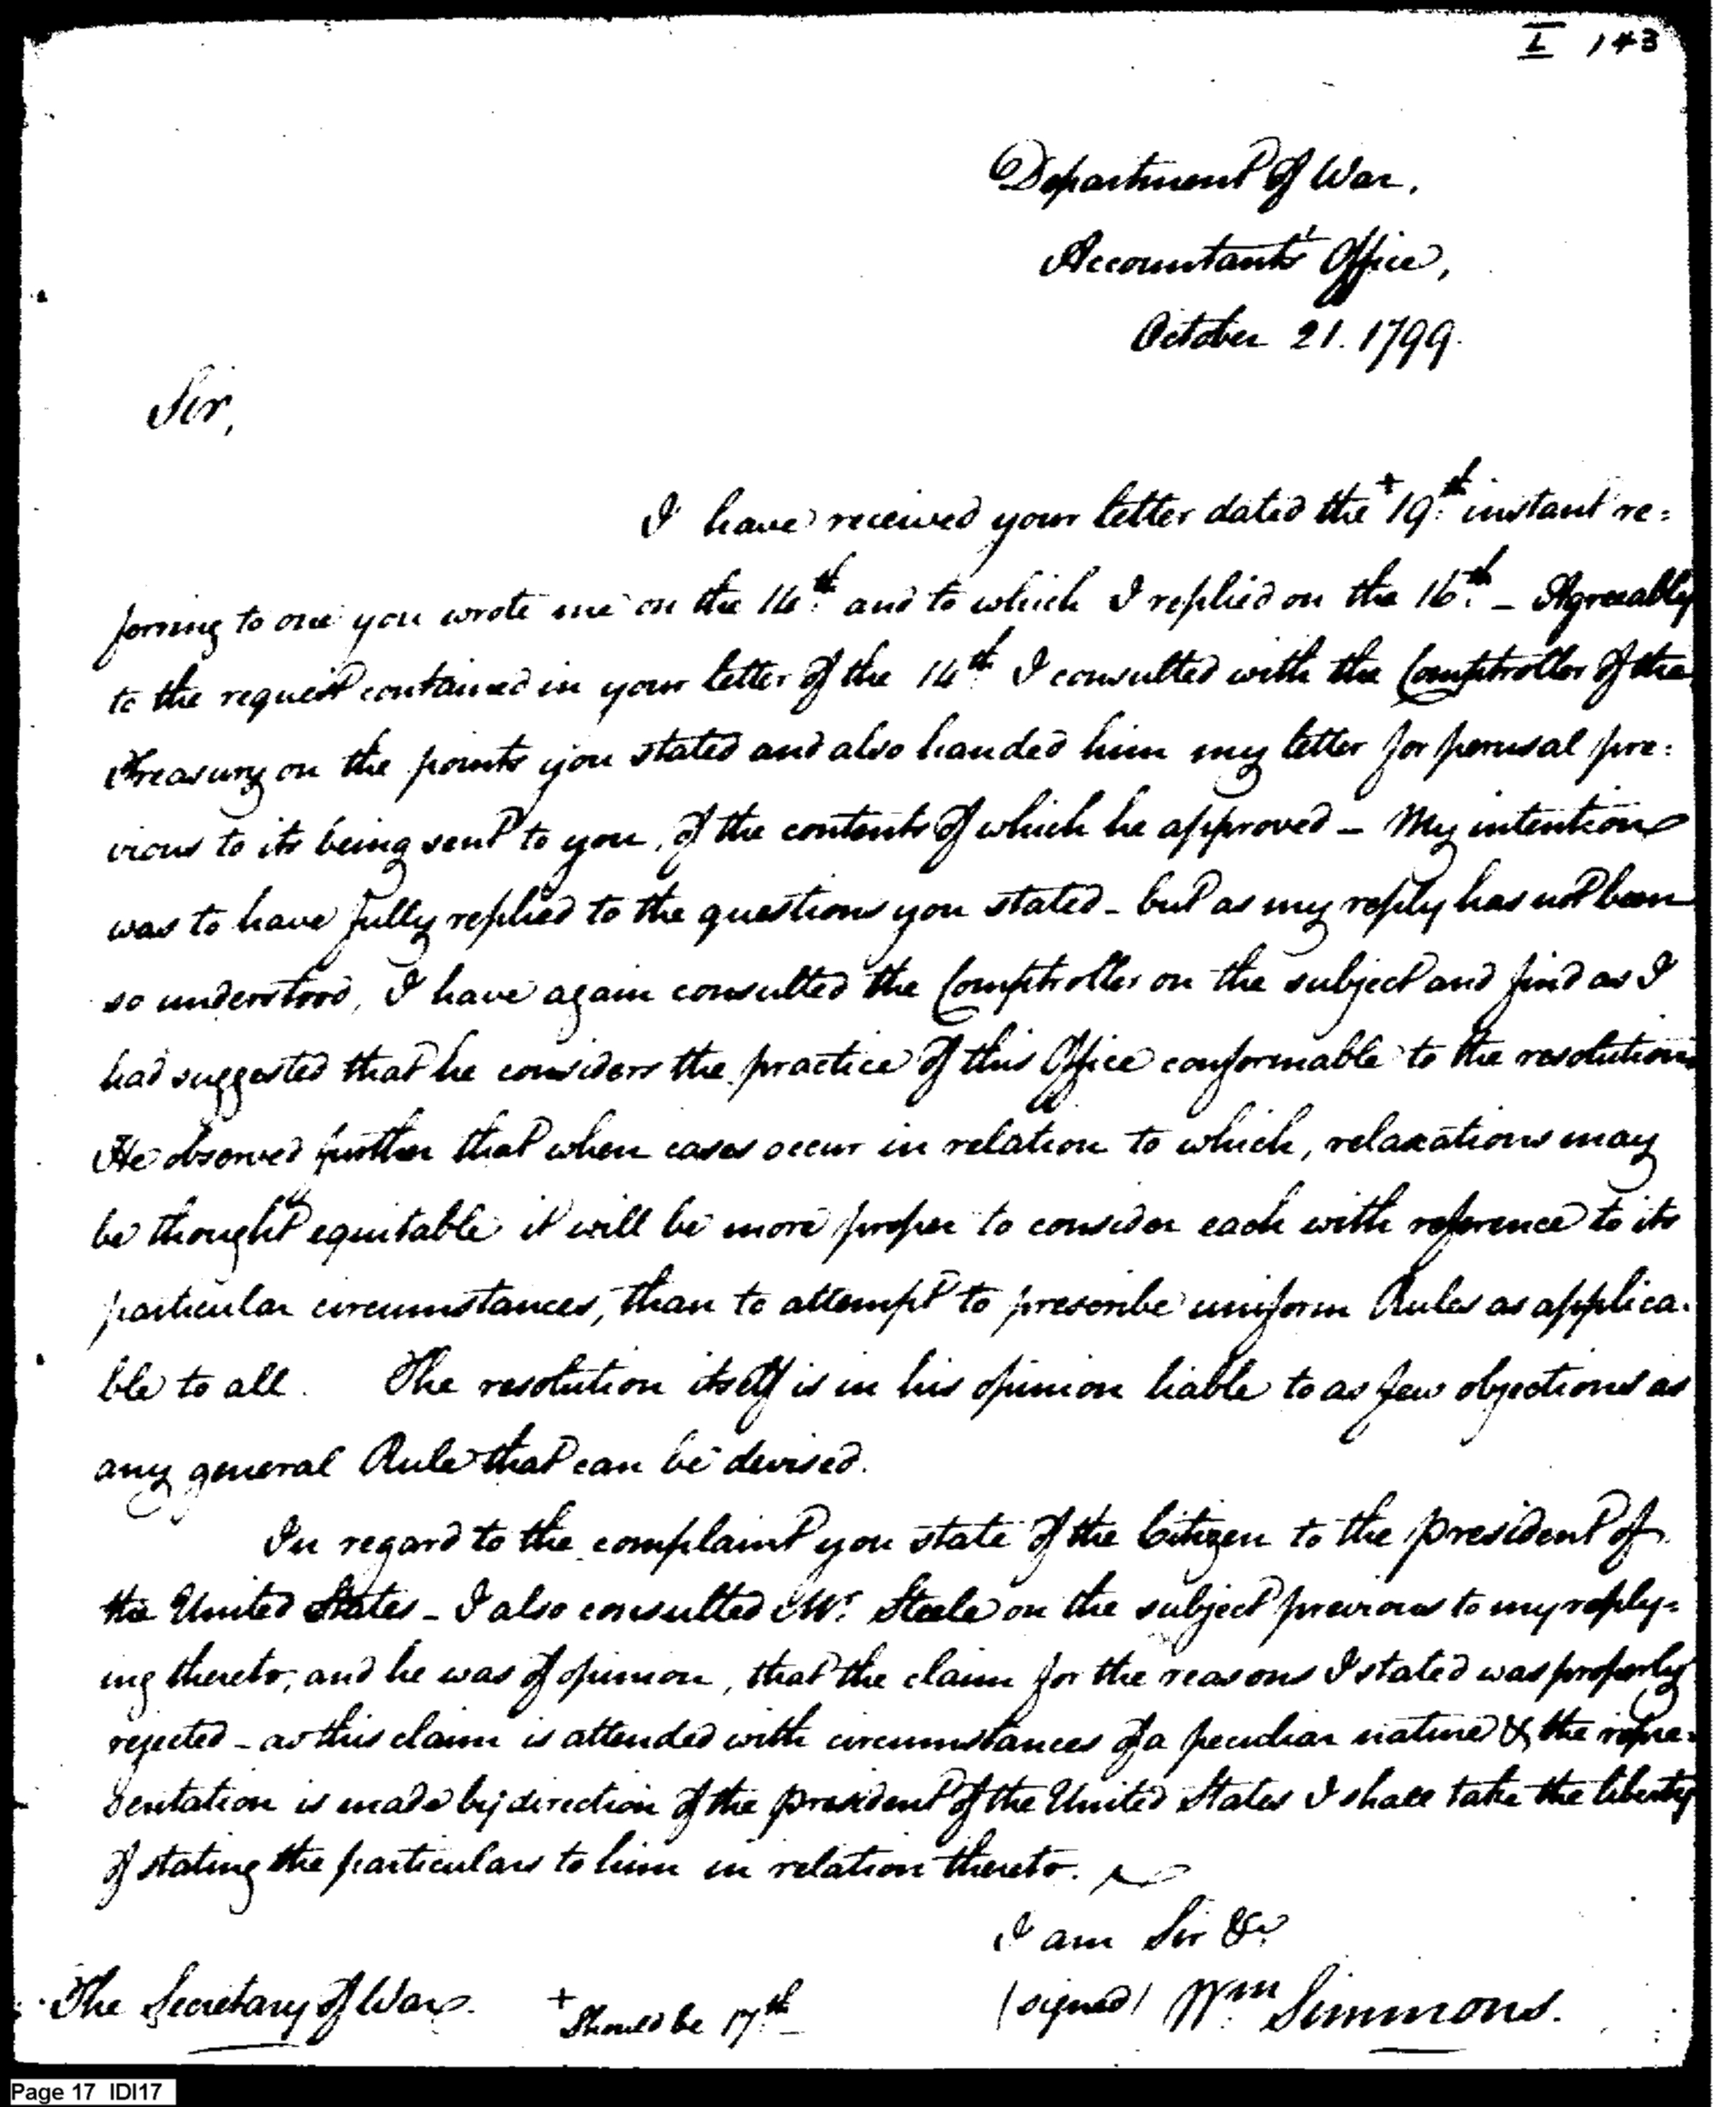 I 143
Department of War.
Accountants Office,
October 21. 1799.
Sir,
I have received your letter dated the + 19th instant re=
ferring to one you wrote me on the 14th and to which I replied on the 16th. – Agreeably
to the request contained in your letter of the 14th I consulted with the Comptroller of the
Treasury on the points you stated and also handed him my letter for perusal pre=
vious to its being sent to you, of the contents of which he approved – My intention
was to have fully replied to the questions you stated – but as my reply has not been
so understood, I have again consulted the Comptroller on the subject and find as I
had suggested that he considers the practice of this Office conformable to the resolution
He observed further that when cases occur in relation to which, relaxations may
be thought equitable it will be more proper to consider each with reference to its
particular circumstances, than to attempt to prescribe uniform Rules as applica-
ble to all. The resolution itself is in his opinion liable to as few objections as
any general Rule that can be devised.
In regard to the complaint you state of the Citizen to the president of
the United States – I also consulted Mr. Steele on the subject previous to my reply=
ing thereto, and he was of opinion, that the claim for the reasons I stated was properly
rejected – as this claim is attended with circumstances of a peculiar nature & the repre=
sentation is made by direction of the president of the United States I shall take the liberty
of stating the particulars to him in relation thereto.
I am Sir &c.
(signed) Wm Simmons.
The Secretary of War.
+ Should be 17th
Page 17 IDI17